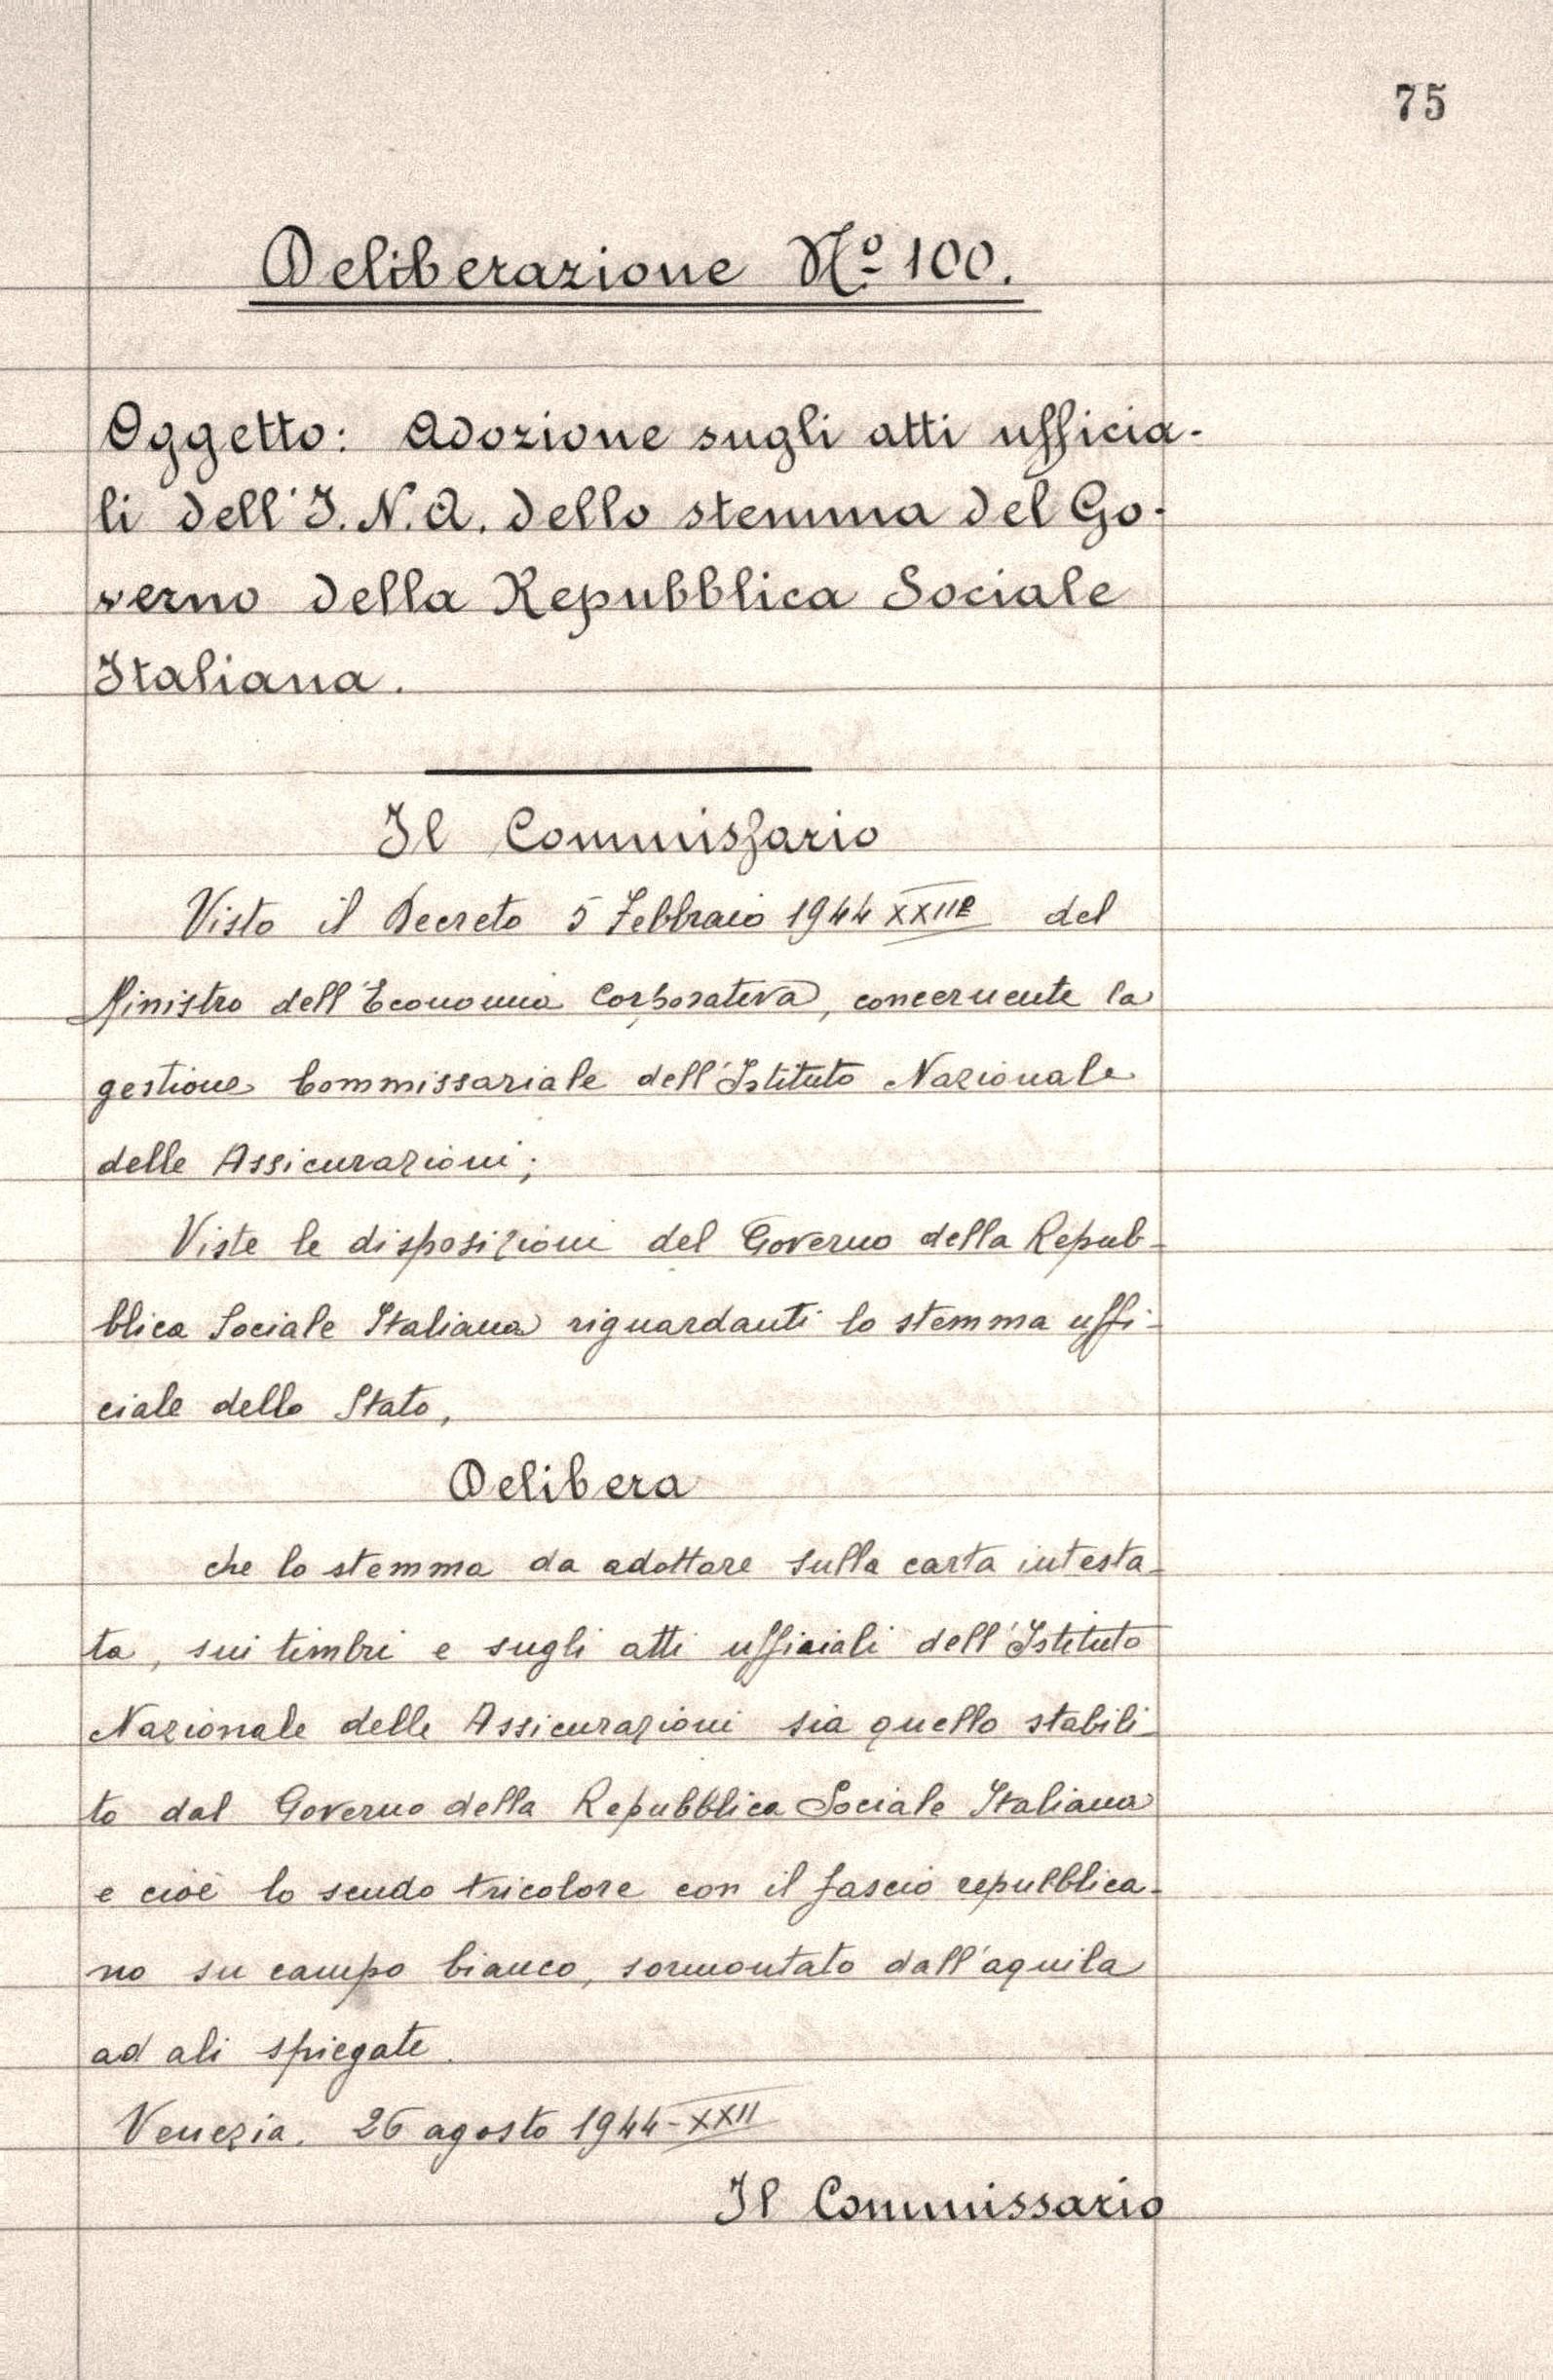 75
Deliberazione Nº 100.
Oggetto: Adozione sugli atti ufficia-
li dell'I.N.A. dello stemma del Go-
verno della Repubblica Sociale
Italiana.
Il Commissario
Visto il Decreto 5 Febbraio 1944 XXIIº del
Ministro dell'Economia Corporativa, concernente la
gestione Commissariale dell'Istituto Nazionale
delle Assicurazioni;
Viste le disposizioni del Governo della Repub-
blica Sociale Italiana riguardanti lo stemma uffi-
ciale dello Stato,
Delibera
che lo stemma da adottare sulla carta intesta-
ta, sui timbri e sugli atti ufficiali dell'Istituto
Nazionale delle Assicurazioni sia quello stabili-
to dal Governo della Repubblica Sociale Italiana
e cioè lo scudo tricolore con il fascio repubblica-
no su campo bianco, sormontato dall'aquila
ad ali spiegate.
Venezia. 26 agosto 1944-XXII
Il Commissario